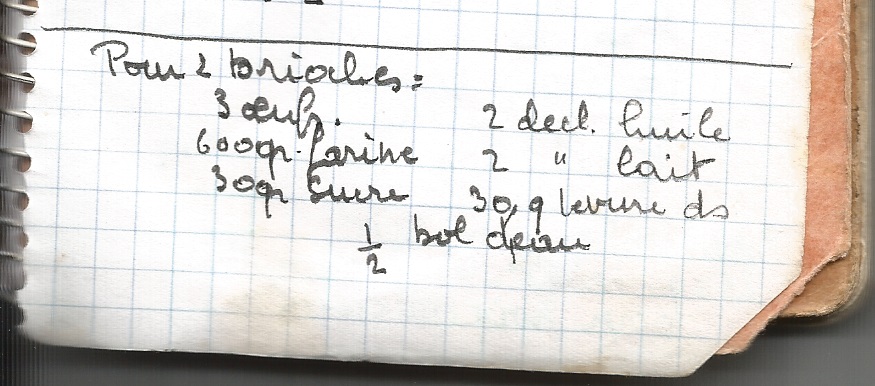 Pour 2 brioches =
3 œufs. 2 decl. huile
600gr. farine 2 " lait
30gr Sucre 30 g levure ds
1/2 bol d'eau